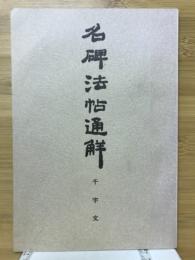 名碑法帖通解
千字文